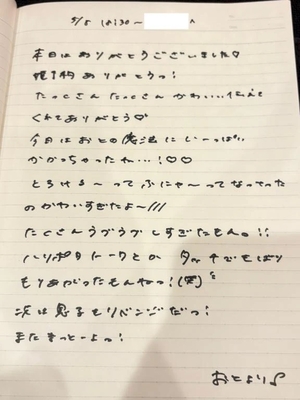 5/5 18:30〜
本日はありがとうございました♡
ありがとうっ!
たっくさんたっくさんかわ…伝えて
くれてありがとう♡
今日はおとの魔法にいーっぱい
かかっちゃったね…!♡♡
とろける〜ってふにゃ〜ってなってた
のかわいすぎたよ〜///
たくさんうずうずしすぎたもん。!!
ハリポタトークとか
もりあがったもんねっ!(笑)
次は息子もリベンジだっ!
またきっとーよっ!
おとより♪